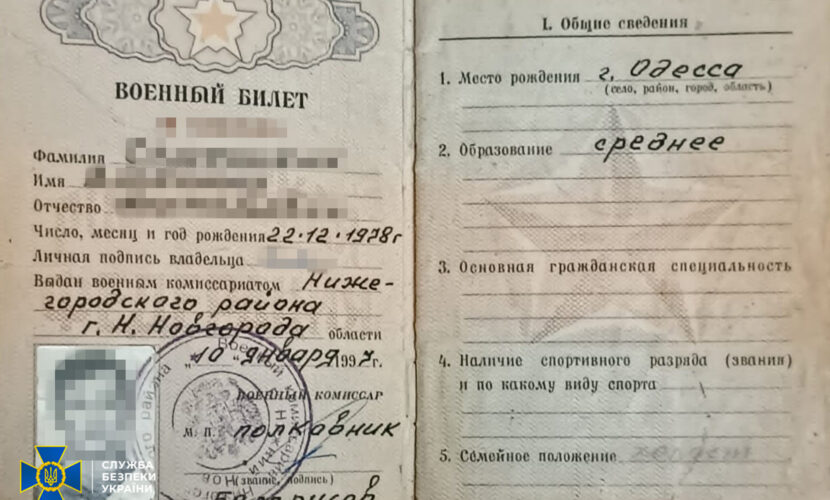 ВОЕННЫЙ БИЛЕТ
Фамилия
Имя
Отчество
Число, месяц и год рождения 22.12.1978 г
Личная подпись владельца
Выдан военным комиссариатом Ниже-
городского района
г. Н. Новгорода области
"10" января 1997 г.
ВОЕННЫЙ КОМИССАР
М. П. полковник
(звание, подпись)
СЛУЖБА
БЕЗПЕКИ
УКРАЇНИ
I. Общие сведения
1. Место рождения г. Одесса
(село, район, город, область)
2. Образование среднее
3. Основная гражданская специальность
4. Наличие спортивного разряда (звания)
и по какому виду спорта
5. Семейное положение холост